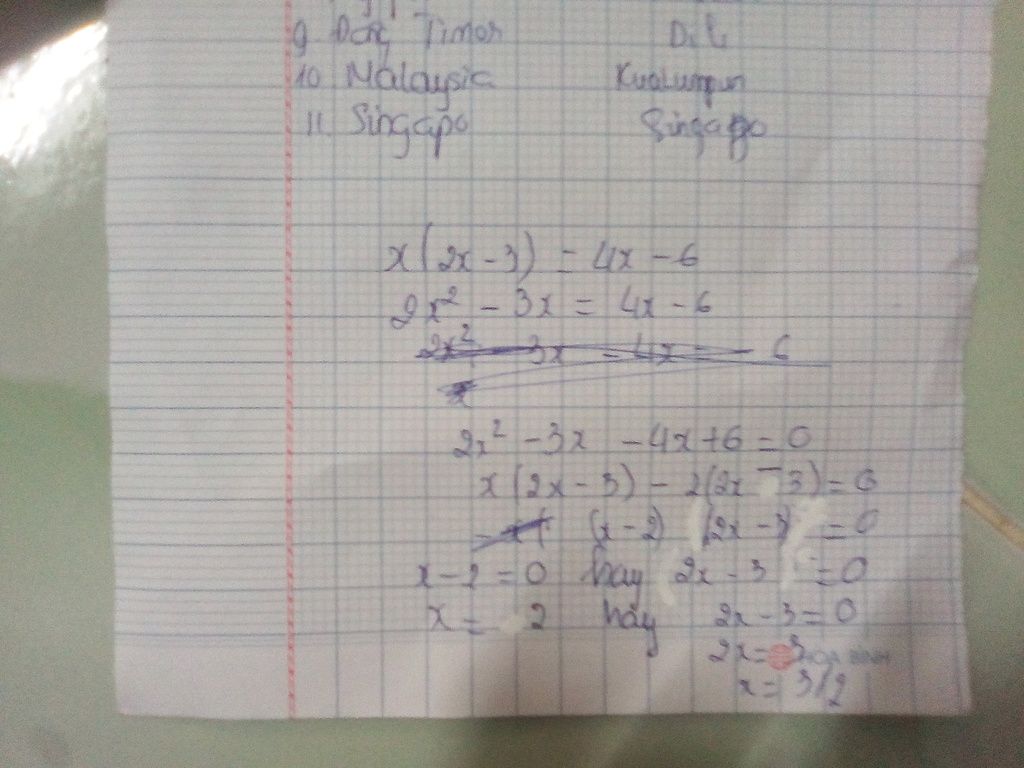 9 Đông Timor Dili
10 Malaysia Kualumpun
11 Singapo Singapo
x(2x-3) = 4x-6
2x² - 3x = 4x-6
2x² 3x = 4x - 6
x
2x² -3x -4x+6 = 0
x(2x-3) - 2(2x-3) = 0
(x-2) (2x-3) = 0
x-2=0 hay 2x-3 = 0
x = 2 hay 2x-3=0
2x = 3
x = 3/2